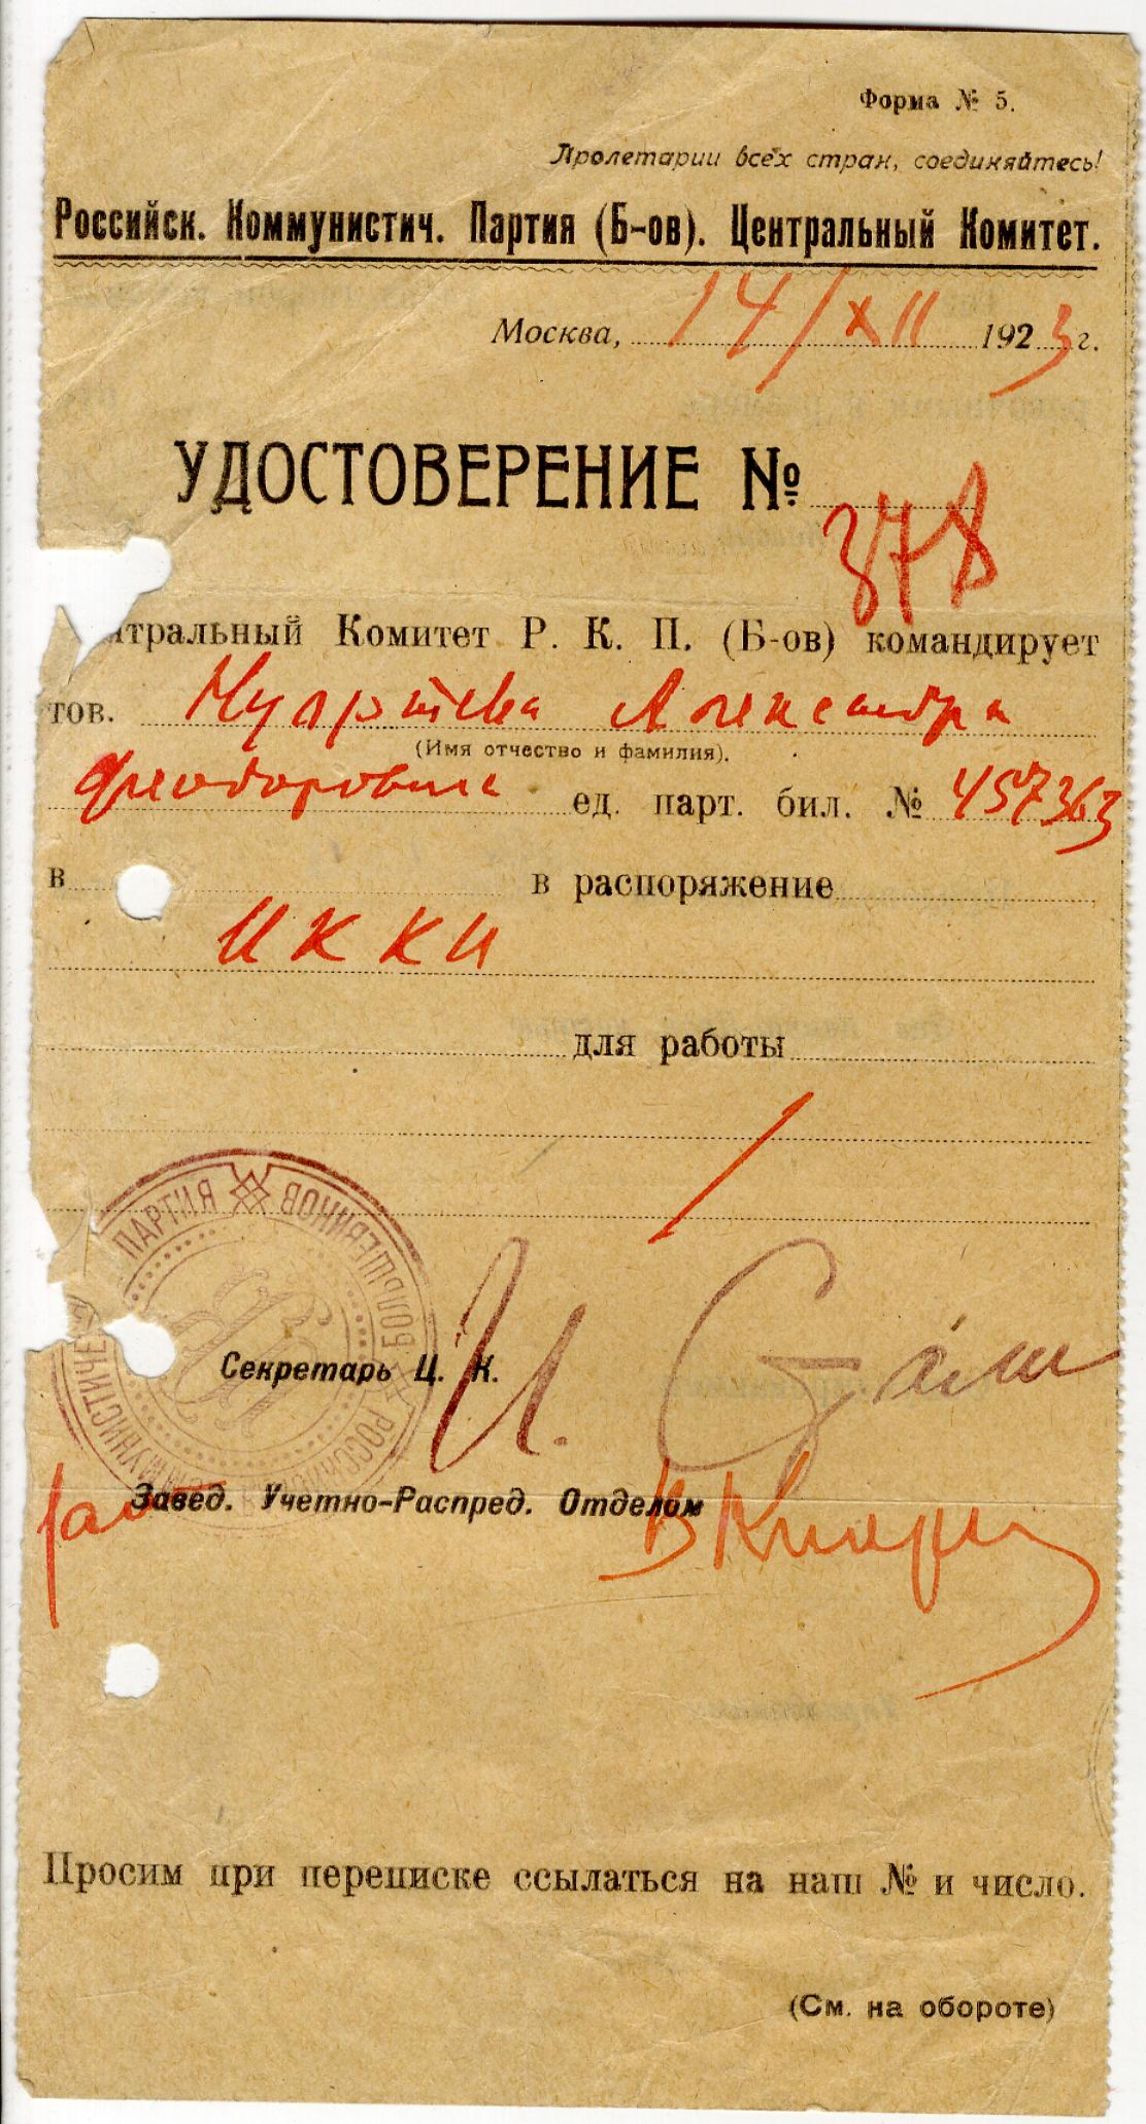 Форма № 5.
Пролетарии всех стран, соединяйтесь!
Российск. Коммунистич. Партия (Б-ов). Центральный Комитет.
Москва, 14/XII 1923 г.
УДОСТОВЕРЕНИЕ № 378
нтральный Комитет Р. К. П. (Б-ов) командирует
тов. Александра
(Имя отчество и фамилия).
Феодоровича ед. парт. бил. № 457363
в в распоряжение
ИККИ
для работы
ПАРТИЯ БОЛЬШЕВИКОВ
Секретарь Ц. К. И. Сталин
Завед. Учетно-Распред. Отделом
Просим при переписке ссылаться на наш № и число.
(См. на обороте)